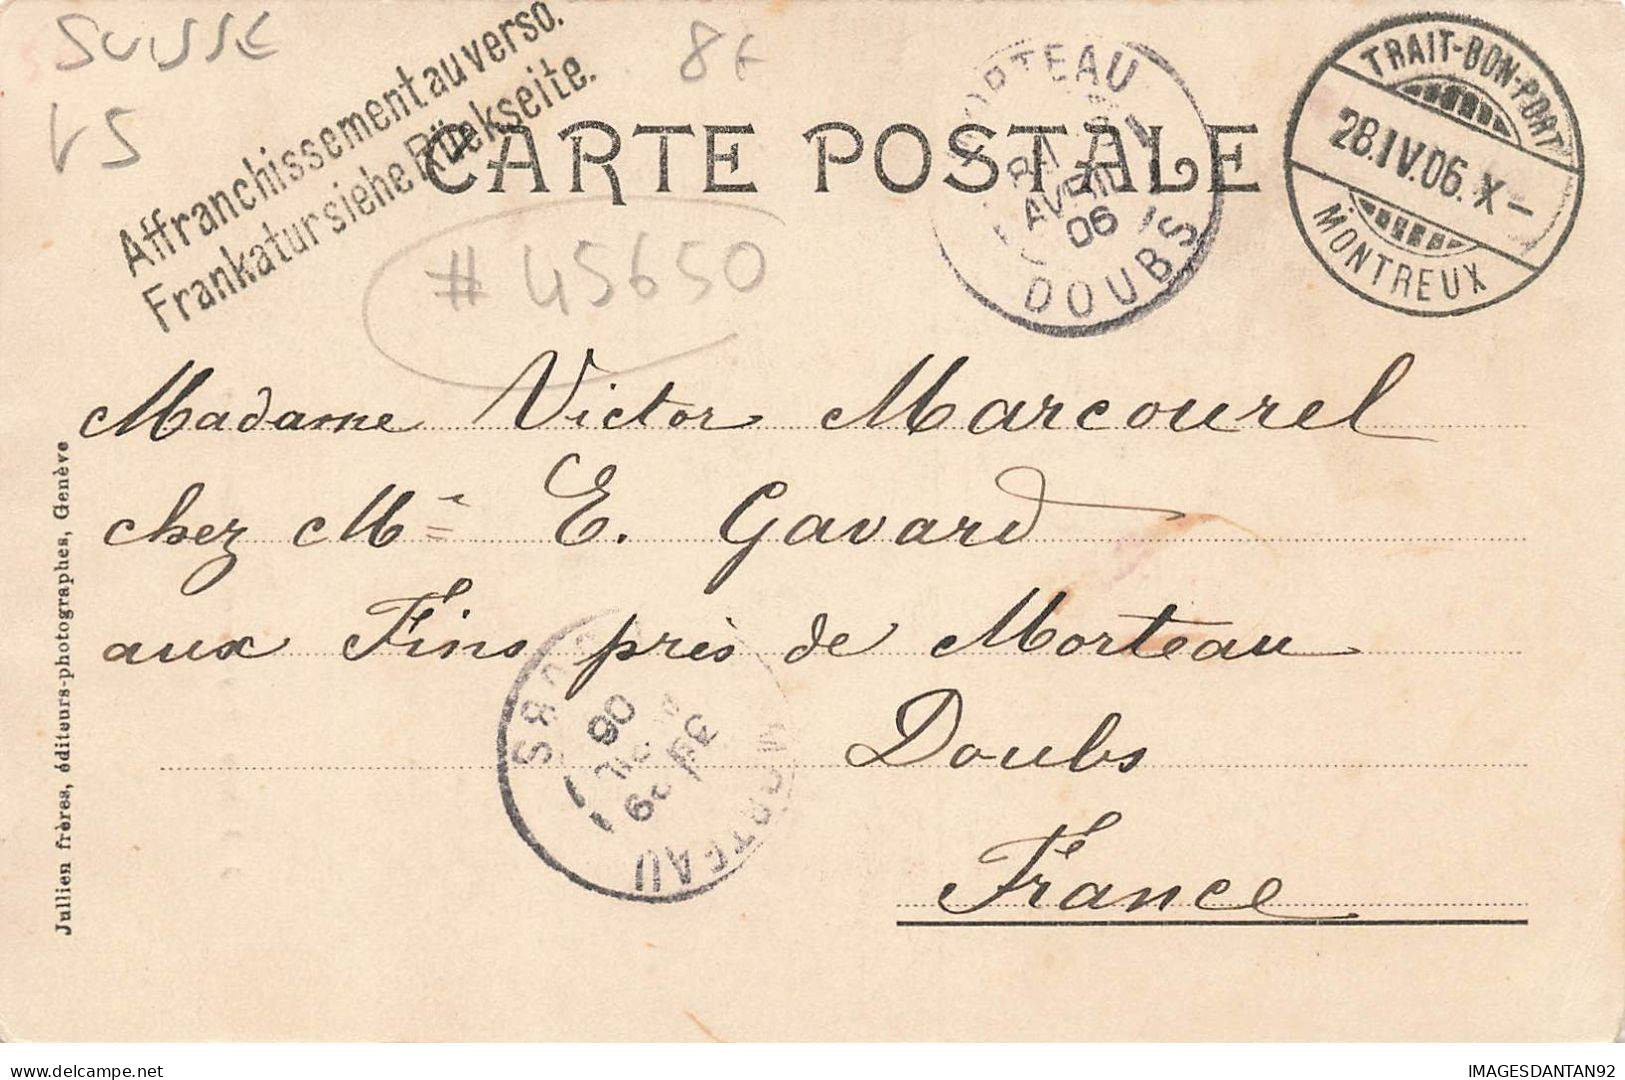 SUISSE
VS
8F
Affranchissement au verso.
Frankatur siehe Rückseite.
CARTE POSTALE
# 45650
MORTEAU
AVRIL
06
DOUBS
TRAIT-BON-PORT
28.IV.06.X–
MONTREUX
Madame Victor Marcourel
chez Me E. Gavard
aux Fins près de Morteau
Doubs
France
MORTEAU
06
DOUBS
Jullien frères, éditeurs-photographes, Genève
IMAGESDANTAN92